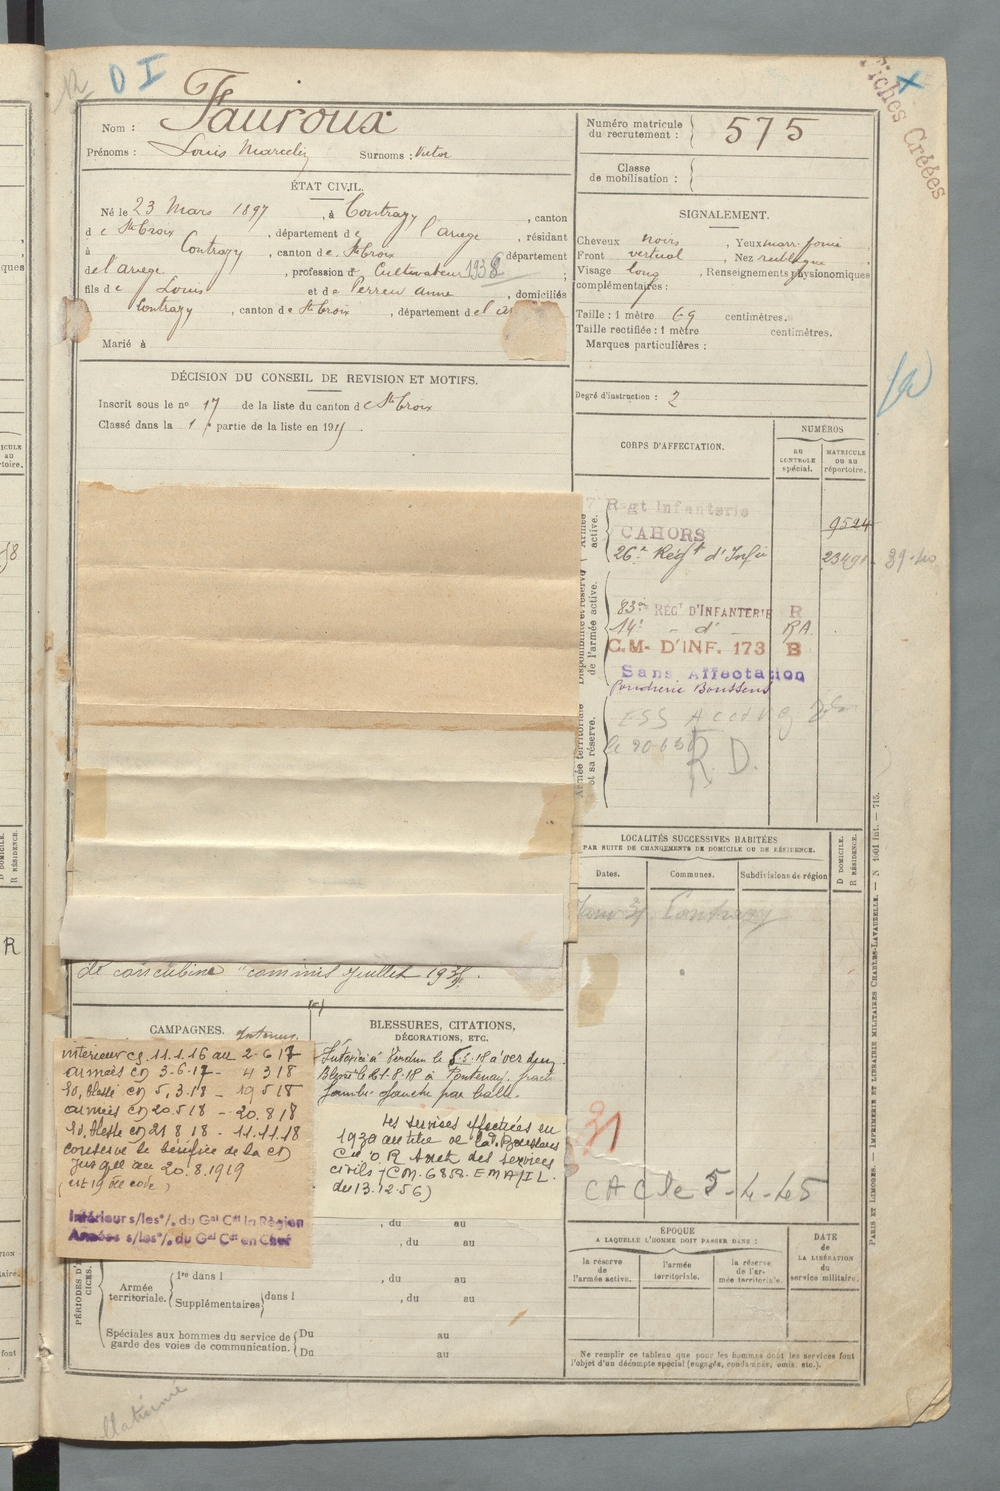 D I
Fiches Créées
Nom : Fauroux
Prénoms : Louis Marcelin Surnoms : Victor
Numéro matricule
du recrutement : 575
Classe
de mobilisation :
ÉTAT CIVIL.
Né le 23 Mars 1897, à Contrazy, canton
de Ste Croix, département de l'Ariège, résidant
à Contrazy, canton de Ste Croix, département
de l'Ariège, profession de Cultivateur 1938
fils de Louis et de Perreu Anne, domiciliés
Contrazy, canton de Ste Croix, département de l'
Marié à
SIGNALEMENT.
Cheveux noirs, Yeux marr. foncé
Front vertical, Nez rectiligne
Visage long, Renseignements physionomiques
complémentaires :
Taille : 1 mètre 69 centimètres.
Taille rectifiée : 1 mètre centimètres.
Marques particulières :
Degré d'instruction : 2
DÉCISION DU CONSEIL DE REVISION ET MOTIFS.
Inscrit sous le no 17 de la liste du canton de Ste Croix
Classé dans la 1 partie de la liste en 191
CORPS D'AFFECTATION.
NUMÉROS
AU CONTROLE spécial.
MATRICULE OU AU répertoire.
Armée active.
7 Regt Infanterie
CAHORS
9524
26e Régt d'Infie
23491
39-40
Disponibilité et réserve de l'armée active.
83e RÉGT D'INFANTERIE R
14e - d° - RA
C.M. D'INF. 173 B
Sans Affectation
Poudrerie Boussens
Armée territoriale et sa réserve.
R. D.
LOCALITÉS SUCCESSIVES HABITÉES
PAR SUITE DE CHANGEMENTS DE DOMICILE OU DE RÉSIDENCE.
D DOMICILE.
R RÉSIDENCE.
Dates.
Communes.
Subdivisions de région
Contrazy
de concubine" commis Juillet 193
CAMPAGNES.
Intérieur cs. 11.1.16 au 2-6 17
armées cd 3-6-17 - 4 3 18
Id, blessé cd 5.3.18 - 19 5 18
armées cd 20 5 18 - 20.8 18
Id, blessé cd 21 8 18 - 11.11.18
conserve le bénéfice de la cd
jusqu'au 20.8.1919
Intérieur s/les °/. du Gal Cdt la Région
Armées s/les °/. du Gal Cdt en Chef
BLESSURES, CITATIONS,
DÉCORATIONS, ETC.
Intoxiqué Verdun le 5-3-18 à verdun.
Blessé le 21-8-18 à Fontenay. fract
jambe gauche par balle.
Les services effectués en
1939 au titre de la Pie Boussens
civils (CM. 6858. EMA/IL.
du 13.12.56)
21
CAC le 5-4-45
, du au
, du au
PÉRIODES D'
CICES.
Armée
territoriale.
1re dans l , du au
Supplémentaires dans l , du au
Spéciales aux hommes du service de
garde des voies de communication.
Du au
Du au
ÉPOQUE
A LAQUELLE L'HOMME DOIT PASSER DANS :
DATE
DE
LA LIBÉRATION
du
service militaire.
la réserve
de
l'armée active.
l'armée
territoriale.
la réserve
de l'ar-
mée territoriale.
Ne remplir ce tableau que pour les hommes dont les services font
l'objet d'un décompte spécial (engagés, condamnés, omis, etc.).
PARIS ET LIMOGES. — IMPRIMERIE ET LIBRAIRIE MILITAIRES CHARLES-LAVAUZELLE. — N 1601 int. — 715.